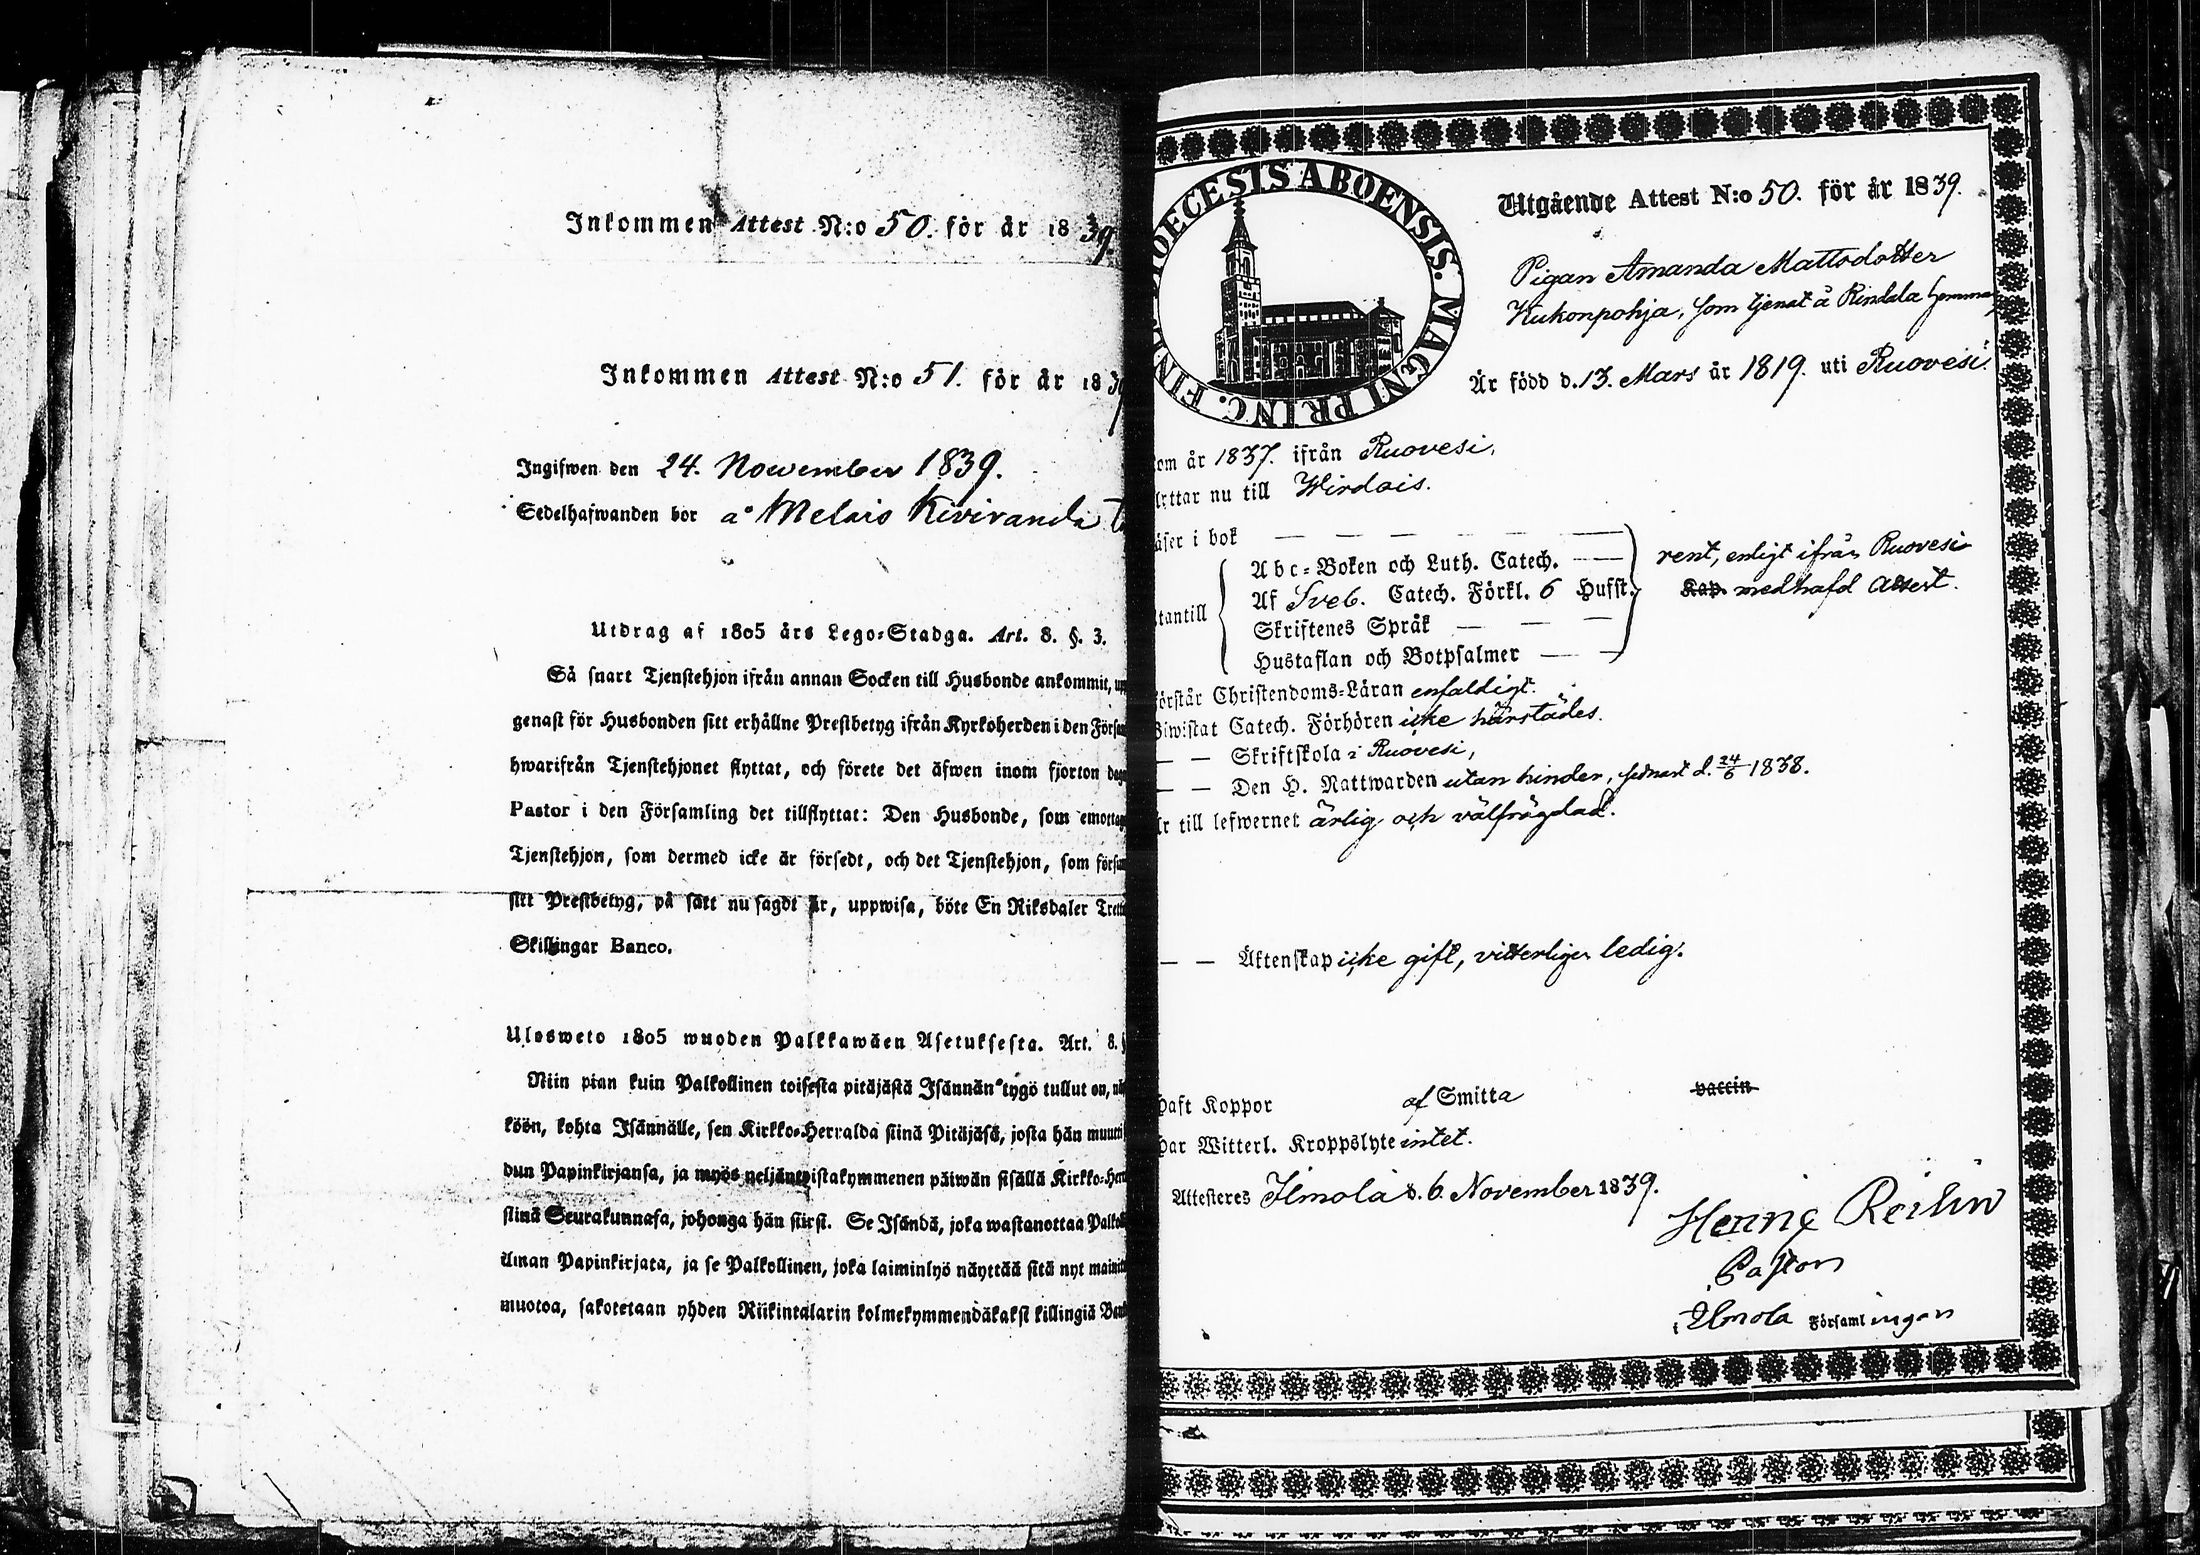 Inkommen Attest N:o 50. för år 1839
Inkommen Attest N:o 51. för år 1839
Ingifwen den 24. Nowember 1839.
Sedelhafwanden bor å Melais Kiviranda
Utdrag af 1805 års Lego-Stadga. Art. 8. §. 3.
Så snart Tjenstehjon ifrån annan Socken till Husbonde ankommit,
genast för Husbonden sitt erhållne Prestbetyg ifrån Kyrkoherden i den
hwarifrån Tjenstehjonet flyttat, och förete det äfwen inom fjorton
Pastor i den Församling det tillflyttat: Den Husbonde, som
Tjenstehjon, som dermed icke är försedt, och det Tjenstehjon, som
sitt Prestbetyg, på sätt nu sagdt är, uppwisa, böte En Riksdaler
Skillingar Banco.
Ulosweto 1805 wuoden Palkkawäen Asetuksesta. Art. 8.
Niin pian kuin Palkollinen toisesta pitäjästä Isännän tygö tullut on,
köön, kohta Isännälle, sen Kirkko-Herralda siinä Pitäjäsä, josta hän
dun Papinkirjansa, ja myös neljäntoistakymmenen päiwän sisällä
siinä Seurakunnasa, johonga hän siirsi. Se Isändä, joka wastanottaa
ilman Papinkirjata, ja se Palkollinen, joka laiminlyö näyttää sitä nyt
muotoa, sakotetaan yhden Riikintalarin kolmekymmendäkaksi killingiä
DIOECESIS ABOENSIS. MAGNI PRINC. FINL.
Utgående Attest N:o 50. för år 1839.
Pigan Amanda Mattsdotter
Kukonpohja, som tjenat å Rindala
Är född d. 13. Mars år 1819. uti Ruovesi.
om år 1837. ifrån Ruovesi,
lyttar nu till Wirdois.
äser i bok
Abc-Boken och Luth. Catech.
Af Sveb. Catech. Förkl. 6 Hufst.
tantill
Skriftenes Språk
Hustaflan och Botpsalmer
rent, enligt ifrån Ruovesi
Kap. medhafd attest.
örstår Christendoms-Läran enfaldigt.
Biwistat Catech. Förhören icke härstädes.
— — Skriftskola i Ruovesi,
— — Den H. Nattwarden utan hinder, sednast d. 24/6 1838.
r till lefwernet ärlig och välfrägdad.
— — Äktenskap icke gift, vitterligen ledig.
haft Koppor af Smitta vaccin
har Witterl. Kroppslyte intet.
Attesteres Ilmola d. 6. November 1839.
Henric Reilin
Pastor
i Ilmola Församlingen